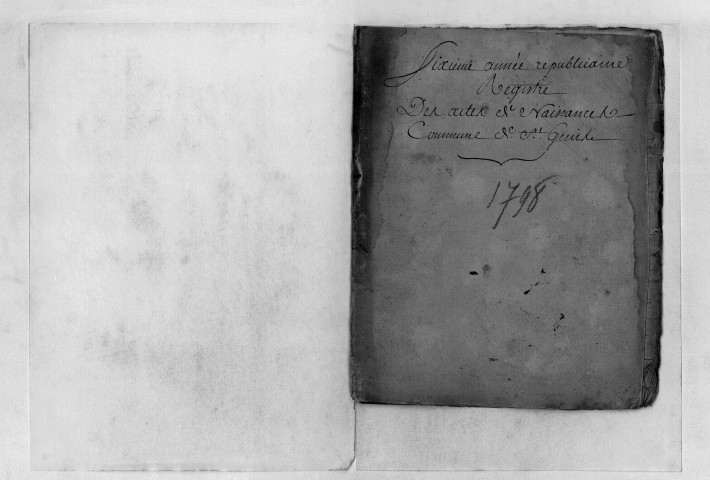 Sixieme année republicaine
Registre
Des actes de Naissances
Commune de St. Geniès
1798